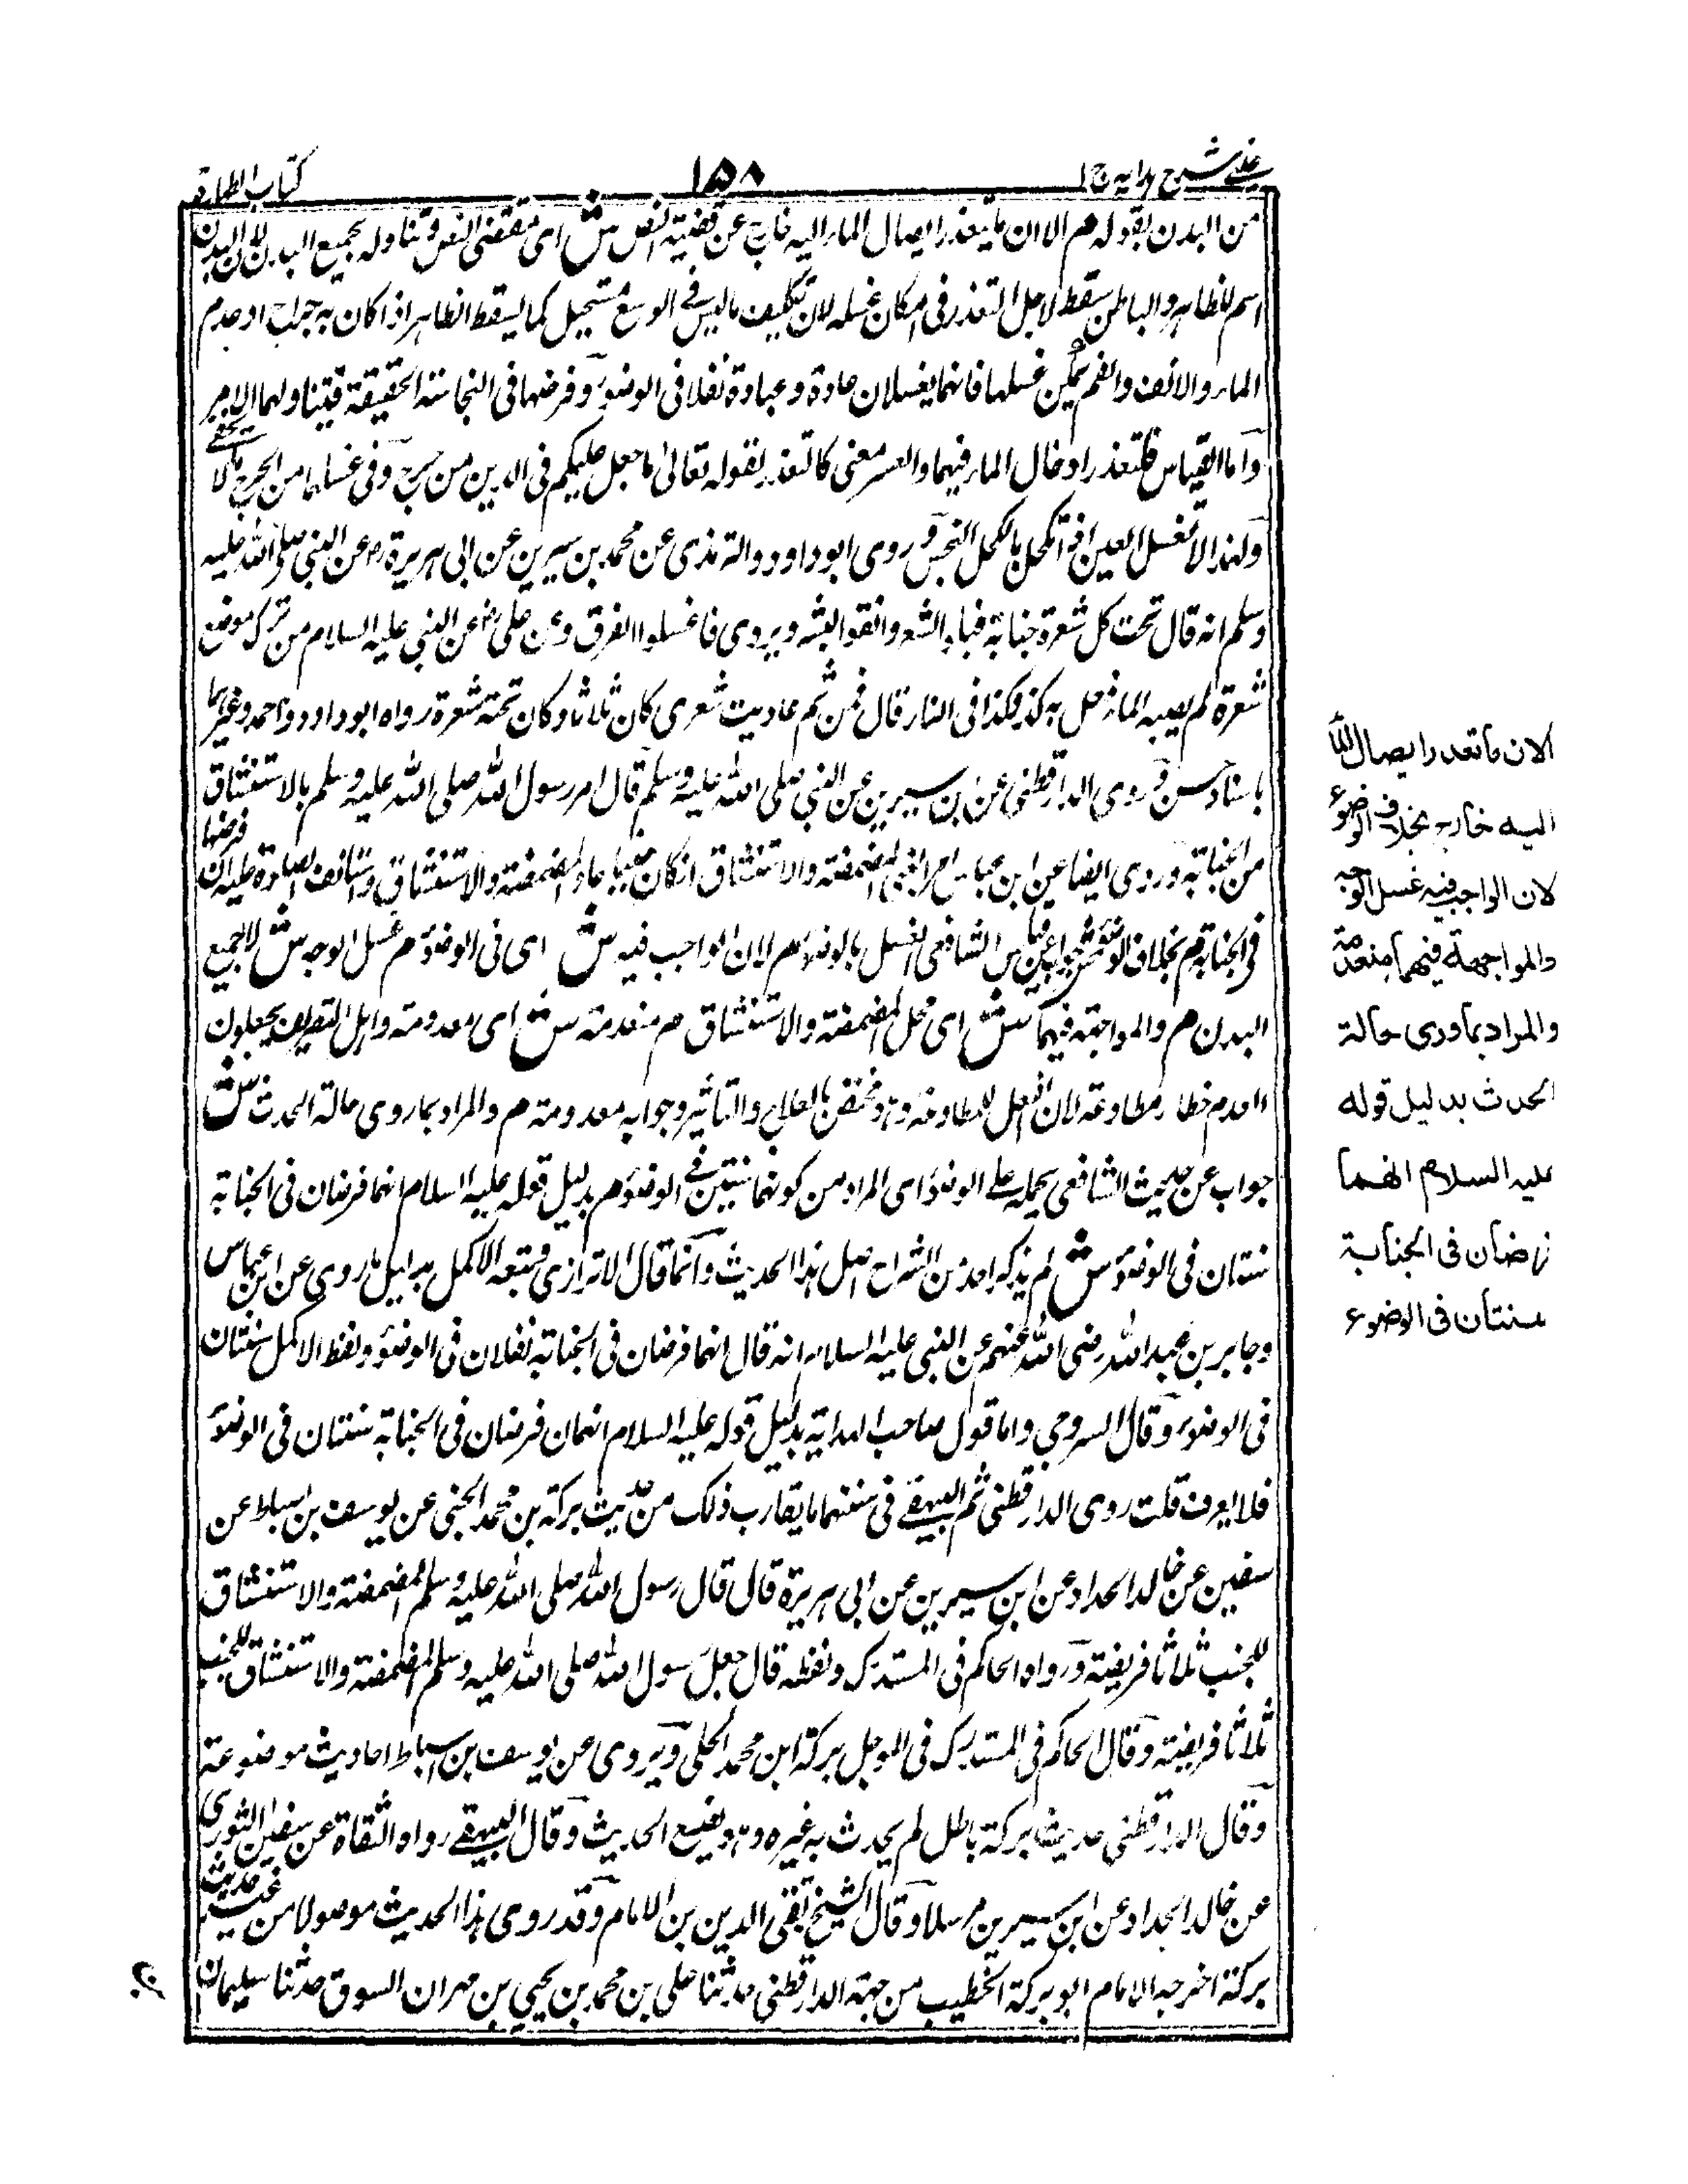 عینی شرح هدایه ج ا
١٥٨
کتاب الطهارة
من البدن بقوله م الا ان ما یتعذر ایصال الماء الیه خارج عن قضیة النص ش ای مقتضی النص وتناوله بجمیع البدن لان البدن
اسم للظاهر والباطن سقط لاجل التعذر فی امکان غسله لان تکلیف ما لیس فے الوسع مستحیل کما یسقط الظاهر اذا کان به جراح او عدم
الماء والانف والفم یمکن غسلها فانهما یغسلان عادة وعبادة نفلا فی الوضوء وفرضها فی النجاسة الحقیقة فیتناولهما الامر
واما القیاس فلتعذر ادخال الماء فیهما والعسر معنی کالتعذر لقوله تعالیٰ ما جعل علیکم فی الدین من حرج وفی غسلهما من الحرج ما لا یخفے
ولهذا لا تغسل العین اذا اکتحل بالکحل النجس وروی ابو داود والترمذی عن محمد بن سیرین عن ابی هریرة رض عن النبی صلی الله علیه
وسلم انه قال تحت کل شعرة جنابة فبلوا الشعر وانقوا البشر ویروی فاغسلوا الفرق وعن علی رض عن النبی علیه السلام من ترک موضع
شعرة لم یصبه الماء فعل به کذا وکذا فی النار قال فمن ثم عادیت شعری کان ثلاثا وکان تحته شعرة رواه ابو داود واحمد وغیرهما
باسناد حسن وروی الدارقطنی عن ابن سیرین عن النبی صلی الله علیه وسلم قال امر رسول الله صلی الله علیه وسلم بالاستنشاق
من الجنابة وروی ایضا عن ابن عباس المضمضة والاستنشاق ان کان جنبا اعاد المضمضة والاستنشاق واستانف الصلاة علیه ان فرضها
فی الجنابة م بخلاف الوضوء ش جواب عن قیاس الشافعی الغسل بالوضوء م لان الواجب فیه ش ای فی الوضوء م غسل الوجه ش لا جمیع
البدن م والمواجهة فیهما ش ای محل المضمضة والاستنشاق م منعدمة ش ای معدومة واهل التصریف یجعلون
انعدم خطاء مطاوعة لان انفعل للمطاوعة وهو مختص بالعلاج والتاثیر وجوابه معدومة م والمراد بما روی حالة الحدث ش
جواب عن حدیث الشافعی یحمله علی الوضوء ای المراد من کونهما سنتین فے الوضوء م بدلیل قوله علیه السلام انهما فرضان فی الجنابة
سنتان فی الوضوء ش لم یذکر احد من الشراح اصل هذا الحدیث وانما قال الاترازی وتبعه الاکمل بدلیل ما روی عن ابن عباس
وجابر بن عبد الله رضی الله عنهم عن النبی علیه السلام انه قال انهما فرضان فی الجنابة نفلان فی الوضوء ولفظ الاکمل سنتان
فی الوضوء وقال السروجی واما قول صاحب الهدایة بدلیل قوله علیه السلام انهما فرضان فی الجنابة سنتان فی الوضوء
فلا یعرف قلت روی الدارقطنی ثم البیهقے فی سننهما ما یقارب ذلک من حدیث برکة بن محمد الحلبی عن یوسف بن اسباط عن
سفین عن خالد الحداد عن ابن سیرین عن ابی هریرة قال قال رسول الله صلی الله علیه وسلم المضمضة والاستنشاق
للجنب ثلاثا فریضة ورواه الحاکم فی المستدرک ولفظه قال جعل رسول الله صلی الله علیه وسلم المضمضة والاستنشاق للجنب
ثلاثا فریضة وقال الحاکم فی المستدرک فی الموجل برکة ابن محمد الحلبی ویروی عن یوسف بن اسباط احادیث موضوعة
وقال الدارقطنی حدیث برکة باطل لم یحدث به غیره وهو یضع الحدیث وقال البیهقے رواه الثقاة عن سفین الثوری
عن خالد الحداد عن ابن سیرین مرسلا وقال الشیخ تقی الدین بن الامام وقد روی هذا الحدیث موصولا من غیر حدیث
برکة اخرجه الامام ابو برکة الخطیب من جهة الدارقطنی حدثنا علی بن محمد بن یحیی بن مهران السوق حدثنا سلیمان بن
الا ان ما تعذر ایصال الماء
الیه خارج بخلاف الوضوء
لان الواجب فیه غسل الوجه
والمواجهة فیهما منعدمة
والمراد بما روی حالة
الحدث بدلیل قوله
علیه السلام انهما
فرضان فی الجنابة
سنتان فی الوضوء